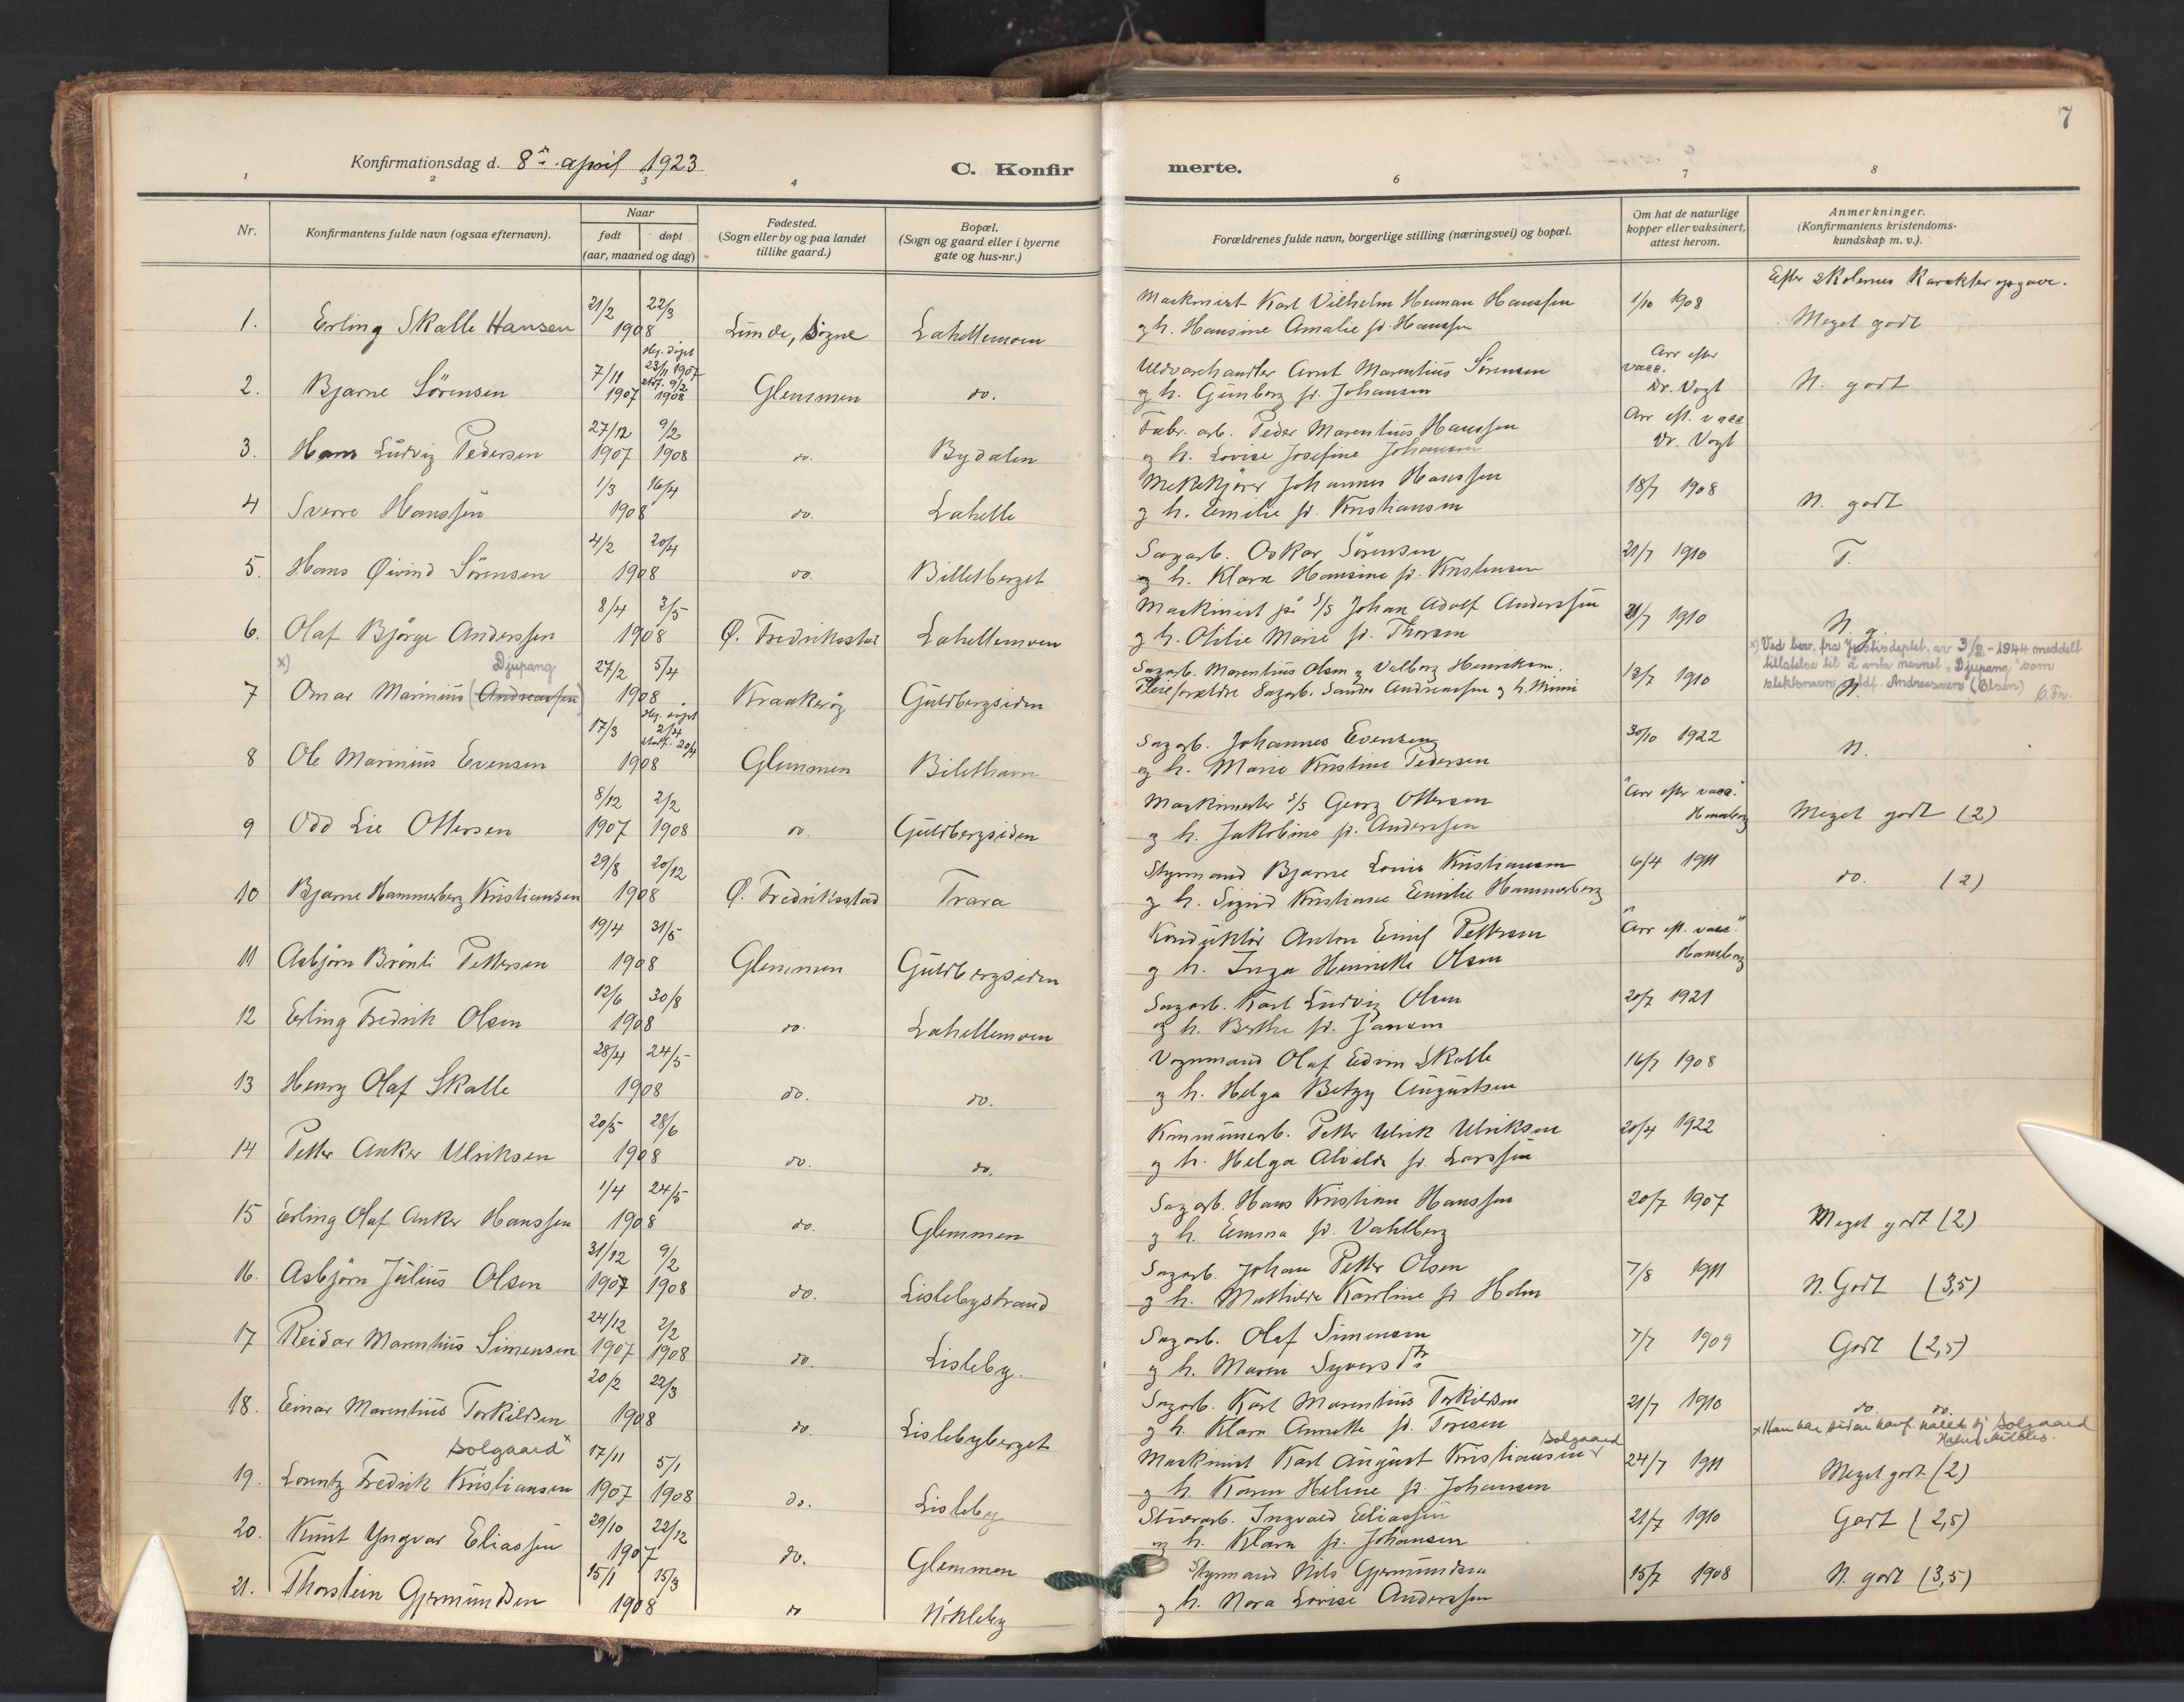 7
Konfirmationsdag d. 8de april 1923.
C. Konfirmerte.
1 2 3 4 6 7 8
Nr.
Konfirmantens fulde navn (ogsaa efternavn).
Naar
født døpt
(aar, maaned og dag)
Fødested.
(Sogn eller by og paa landet
tillike gaard.)
Bopæl.
(Sogn og gaard eller i byerne
gate og hus-nr.)
Forældrenes fulde navn, borgerlige stilling (næringsvei) og bopæl.
Om hat de naturlige
kopper eller vaksinert,
attest herom.
Anmerkninger.
(Konfirmantens kristendoms-
kundskap m. v.).
Efter skolernes karakteropgave.
1. Erling Skalle Hansen 21/2 22/3 1908 Lunde, Søgne Lahellemoen
Maskinist Karl Vilhelm Herman Hanssen
og h. Hansine Amalie f. Hanssen
1/10 1908 Meget godt
2. Bjarne Sörensen 7/11 1907 hj. døpt 23/11 1907 stadf. 9/2 1908 Glemmen do.
Uldvarehandler Arnt Marentius Sörensen
og h. Gunborg f. Johansen
Arr efter vacc. Dr. Vogt N. godt
3. Hans Ludvig Pedersen 27/12 1907 9/2 1908 do. Bydalen
Fabr. arb. Peder Marentius Hanssen
og h. Lovise Josefine Johansen
Arr eft. vacc Dr. Vogt
4 Sverre Hanssen 1/3 16/4 1908 do. Lahelle
Melkekjörer Johannes Hanssen
og h. Emilie f. Kristiansen
18/7 1908 N. godt
5. Hans Øivind Sörensen 4/2 20/4 1908 do. Billetberget
Sagarb. Oskar Sörensen
og h. Klara Hansine f. Kristensen
21/7 1910 T.
6. Olaf Björge Anderssen 8/4 3/5 1908 Ø. Fredriksstad Lahellemoen
Maskinist på S/S Johan Adolf Anderssen
og h. Otilie Marie f. Thorsen
21/7 1910 N. g.
x) Djupang
7 Omar Marinius (Andreassen) 27/2 5/4 1908 Kraakerøy Guldbergsiden
Sagarb. Marentius Olsen og Valborg Henriksen.
Pleieforældre Sagarb. Sander Andreassen og h. Minni
12/7 1910 N.
x) Ved bev. fra Justisdeptet. av 3/2-1944 meddelt
tillatelse til å anta navnet "Djupang" som
slektsnavn istdf. Andreassen (Olsen) 6. Fn.
8 Ole Marinius Evensen 17/3 hj. døpt 2/4 stadf. 20/4 1908 Glemmen Bilethavn
Sagarb. Johannes Evensen
og h. Marie Kristine Pedersen
30/10 1922 N.
9 Odd Lie Ottersen 8/12 1907 2/2 1908 do. Guldbergsiden
Maskinmester S/S Georg Ottersen
og h. Jakobine f. Anderssen
"Arr efter vacc." Meget godt (2)
10 Bjarne Hammerberg Kristiansen 29/8 20/12 1908 Ø. Fredriksstad Trara
Styrmand Bjarne Louis Kristiansen
og h. Sigrid Kristiane Emilie Hammerberg
6/4 1911 do. (2)
11 Asbjörn Brönli Pettersen 19/4 31/5 1908 Glemmen Guldbergsiden
Konduktör Anton Emil Pettersen
og h. Inga Henriette Olsen
"Arr eft. vacc."
12 Erling Fredrik Olsen 12/6 30/8 1908 do. Lahellemoen
Sagarb. Karl Ludvig Olsen
og h. Berthe f. Jansen
20/7 1921
13 Henry Olaf Skalle 28/4 24/5 1908 do. do.
Vognmand Olaf Edvin Skalle
og h. Helga Betzy Augustsen
16/7 1908
14 Petter Anker Ulriksen 20/5 28/6 1908 do. do.
Kommunearb. Petter Ulrik Ulriksen
og h. Helga Alvilde f. Larssen
20/4 1922
15 Erling Olaf Anker Hanssen 1/4 24/5 1908 do. Glemmen
Sagarb. Hans Kristian Hanssen
og h. Emma f. Vahlberg
20/7 1907 Meget godt (2)
16. Asbjörn Julius Olsen 31/12 1907 9/2 1908 do. Lislebystrand
Sagarb. Johan Petter Olsen
og h. Mathilde Karoline f. Holm
7/8 1911 N. Godt (3,5)
17 Reidar Marentius Simensen 24/12 1907 2/2 1908 do. Lisleby.
Sagarb. Olaf Simensen
og h. Maren Syversdtr
7/7 1909 Godt (2,5)
18. Einar Marentius Torkildsen 20/2 22/3 1908 do. Lislebyberget
Sagarb. Karl Marentius Torkildsen
og h. Klara Annette f. Toresen
21/7 1910 do. do.
Solgaard x
19. Lorentz Fredrik Kristiansen 17/11 1907 5/1 1908 do. Lisleby
Maskinist Karl August Kristiansen Solgaard
og h. Karen Helene f. Johansen
24/7 1911 Meget godt (2)
x Han har sidan konf. kaldt sig Solgaard
20. Knut Yngvar Eliassen 29/10 22/12 1907 do. Glemmen
Stuerarb. Ingvald Eliassen
og h. Klara f. Johansen
21/7 1910 Godt (2,5)
21. Thorstein Gjermundsen 15/1 15/3 1908 do Nökleby
Styrmand Nils Gjermundsen
og h. Nora Lovise Anderssen
15/7 1908 N. godt (3,5)